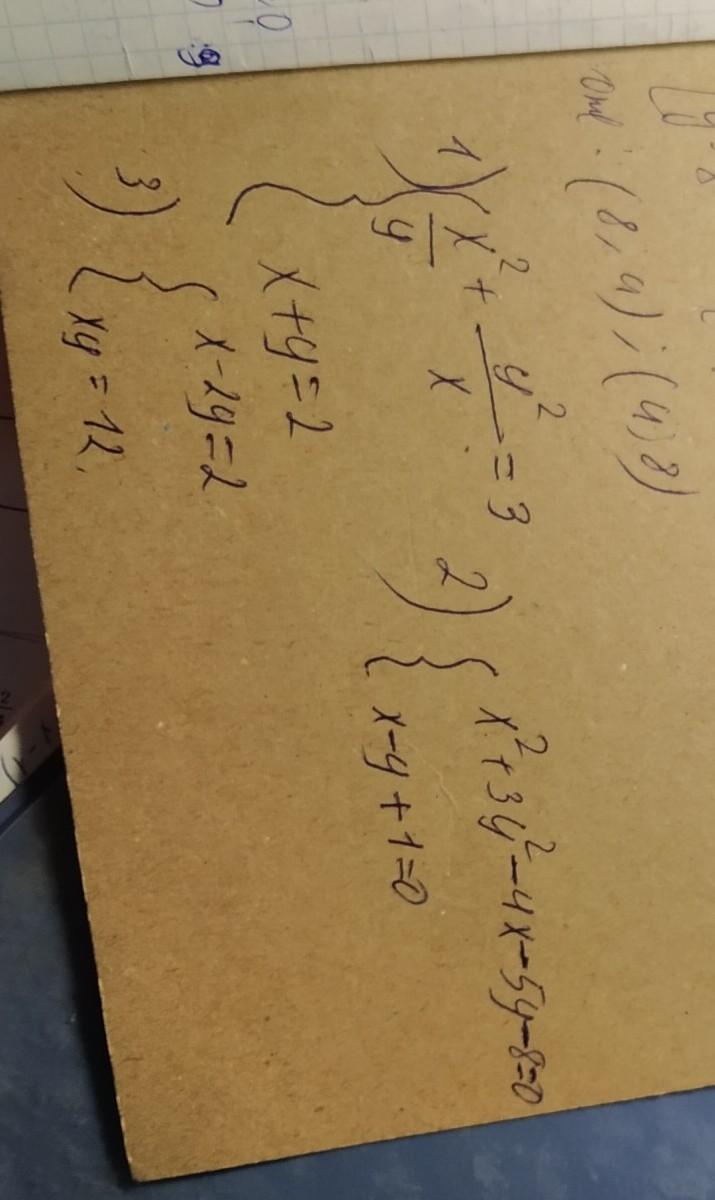 отв: (8; 4); (4; 8)
1) { x²/y + y²/x = 3
x+y=2
2) { x²+3y²-4x-5y-8=0
x-y+1=0
3) { x-2y=2
xy=12.